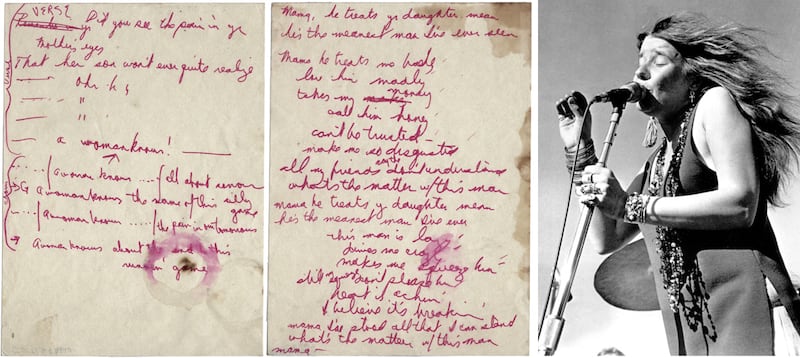 VERSE
Did you see the pain in yr
Mother's eyes
That her son won't ever quite realize
Oh
"
"
a woman knows!
a woman knows .... all about
a woman knows the name of this silly
game
a woman knows .... the pain in
a woman knows about this
runnin' game
Mama, he treats yr daughter mean
He's the meanest man I've ever seen
Mama he treats me badly,
love him madly
takes my money
call him honey
can't be trusted
make me so disgusted
all my friends say they don't understand
what's the matter w/this man
mama he treats yr daughter mean
he's the meanest man I've ever
this man is la
drives me cra
makes me squeeze him
still don't please him
heart is achin'
I believe it's breakin'
mama I've stood all that I can stand
what's the matter w/this man
mama-